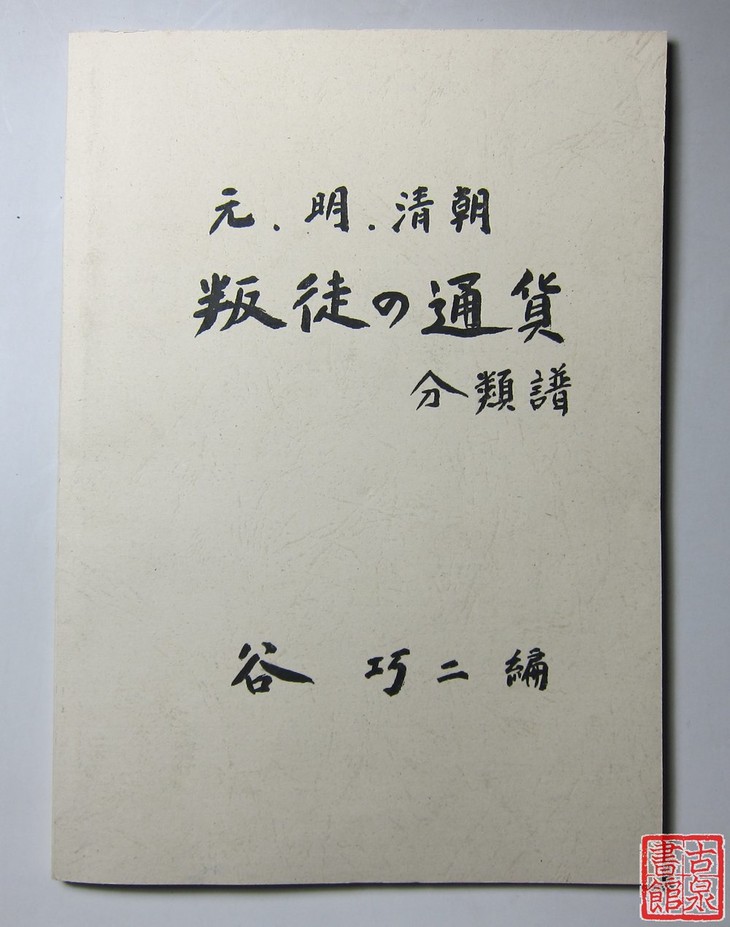 元、明、清朝
叛徒の通貨
分類譜
谷 巧二編
古泉書館